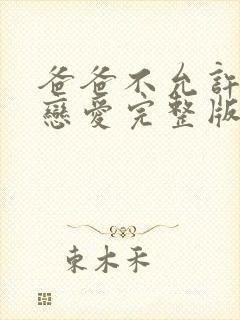 爸爸不允許
戀愛完整版
東木禾